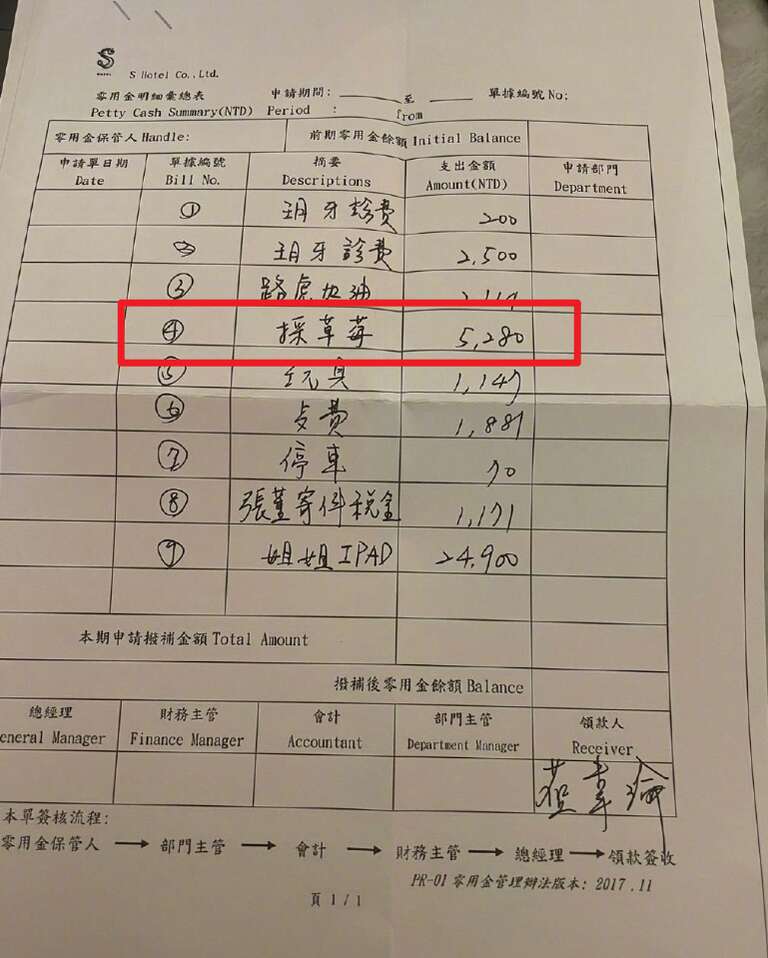 S
HOTEL
S Hotel Co., Ltd.
零用金明細彙總表 申請期間: 至 單據編號 No:
Petty Cash Summary(NTD) Period : from
零用金保管人 Handle: 前期零用金餘額 Initial Balance
申請單日期 單據編號 摘要 支出金額 申請部門
Date Bill No. Descriptions Amount(NTD) Department
① 牙診費 200
② 牙診費 2,500
③ 路虎加油
④ 採草莓 5,280
⑤ 玩具 1,147
⑥ 費 1,887
⑦ 停車 70
⑧ 張董寄件稅金 1,171
⑨ 姐姐IPAD 24,900
本期申請撥補金額 Total Amount
撥補後零用金餘額 Balance
總經理 財務主管 會計 部門主管 領款人
eneral Manager Finance Manager Accountant Department Manager Receiver
本單簽核流程:
零用金保管人 → 部門主管 → 會計 → 財務主管 → 總經理 → 領款簽收
PR-01 零用金管理辦法版本: 2017.11
頁 1 / 1